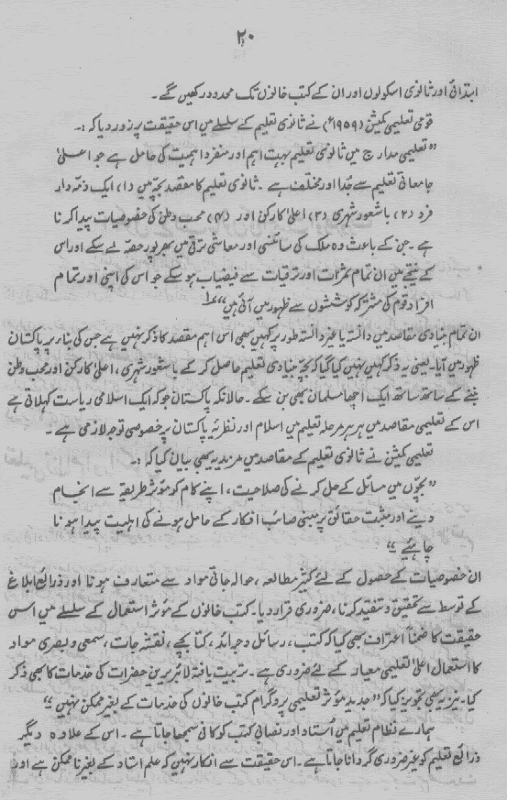 ۲۰
ابتدائی اور ثانوی اسکولوں اور ان کے کتب خانوں تک محدود رکھیں گے۔
قومی تعلیمی کمیشن (۱۹۵۹ء) نے ثانوی تعلیم کے سلسلے میں اس حقیقت پر زور دیا کہ :۔
"تعلیمی مدارج میں ثانوی تعلیم بہت اہم اور منفرد اہمیت کی حامل ہے جو اعلیٰ
جامعاتی تعلیم سے جُدا اور مختلف ہے۔ ثانوی تعلیم کا مقصد بچہ میں (۱) ایک ذمہ دار
فرد (۲) باشعور شہری (۳) اعلیٰ کارکن اور (۴) محب وطن کی خصوصیات پیدا کرنا
ہے۔ جن کے باعث وہ ملک کی سائنسی اور معاشی ترقی میں بھرپور حصہ لے سکے اور اس
کے نتیجے میں ان تمام ثمرات اور ترقیات سے فیضیاب ہو سکے جو اس کی اپنی اور تمام
افراد قوم کی مشترکہ کوششوں سے ظہور میں آتی ہیں"
ان تمام بنیادی مقاصد میں دانستہ یا غیر دانستہ طور پر کہیں بھی اس اہم مقصد کا ذکر نہیں ہے جس کی بنا پر پاکستان
ظہور میں آیا۔ یعنی یہ ذکر کہیں نہیں کیا گیا کہ بچہ بنیادی تعلیم حاصل کر کے باشعور شہری، اعلیٰ کارکن اور محب وطن
بننے کے ساتھ ساتھ ایک اچھا مسلمان بھی بن سکے۔ حالانکہ پاکستان جو کہ ایک اسلامی ریاست کہلاتی ہے
اس کے تعلیمی مقاصد میں ہر ہر مرحلہ تعلیم میں اسلام اور نظریۂ پاکستان پر خصوصی توجہ لازمی ہے۔
تعلیمی کمیشن نے ثانوی تعلیم کے مقاصد میں مزید یہ بھی بیان کیا کہ :۔
"بچوں میں مسائل کے حل کرنے کی صلاحیت، اپنے کام کو مؤثر طریقہ سے انجام
دینے اور مثبت حقائق پر مبنی صائب افکار کے حامل ہونے کی اہلیت پیدا ہونا
چاہئیے"
ان خصوصیات کے حصول کے لئے کثیر مطالعہ، حوالہ جاتی مواد سے متعارف ہونا اور ذرائع ابلاغ
کے توسط سے تحقیق و تنقید کرنا، ضروری قرار دیا۔ کتب خانوں کے مؤثر استعمال کے سلسلے میں اس
حقیقت کا ضمناً اعتراف بھی کیا کہ کتب، رسائل و جرائد، کتابچے، نقشہ جات، سمعی و بصری مواد
کا استعمال اعلیٰ تعلیمی معیار کے لئے ضروری ہے۔ تربیت یافتہ لائبریرین حضرات کی خدمات کا بھی ذکر
کیا۔ نیز یہ بھی تجویز کیا کہ "جدید مؤثر تعلیمی پروگرام کتب خانوں کی خدمات کے بغیر ممکن نہیں"
ہمارے نظام تعلیم میں اُستاد اور نصابی کتب کو کافی سمجھا جاتا ہے۔ اس کے علاوہ دیگر
ذرائع تعلیم کو غیر ضروری گردانا جاتا ہے۔ اس حقیقت سے انکار نہیں کہ علم استاد کے بغیر نا ممکن ہے اور